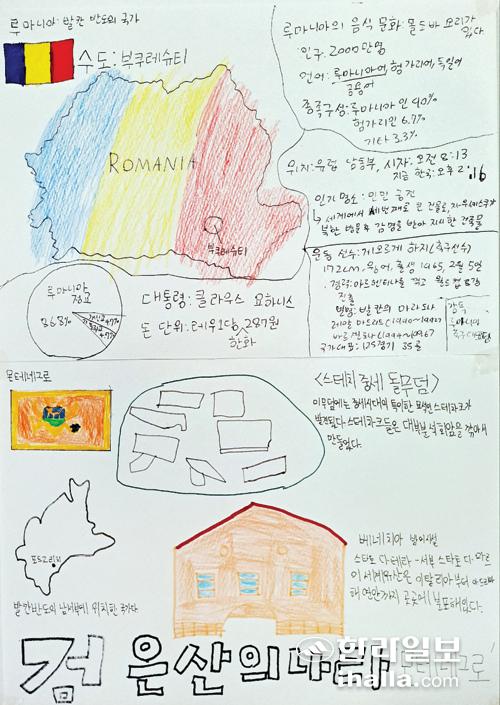 루마니아: 발칸 반도의 국가
수도: 부쿠레슈티
ROMANIA
부쿠레슈티
루마니아의 음식 문화: 몰도바 요리가 있다
인구: 2000만명
언어: 루마니아어, 헝가리어, 독일어
공용어
종족구성: 루마니아인 90%
헝가리인 6.7%
기타 3.3%
위치: 유럽 남동부, 시차: 오전 8:13
지금 한국: 오후 2:16
인기 명소: 인민 궁전
세계에서 세번째로 큰 건물로,
북한 방문 후 감명을 받아 지시한 건축물
운동 선수: 게오르게 하지(축구선수)
172cm, 출생 1965, 2월 5일
경력: 아르헨티나를 꺾고 월드컵 8강
진출
별명: 발칸의 마라도나
레알 마드리드(1990~1992)
국가대표: 125경기 35골
감독
루마니아
루마니아
정교
86.8%
대통령: 클라우스 요하니스
돈 단위: 레우 1당, 287원
한화
몬테네그로
<스테치 중세 돌무덤>
이 무덤에는 중세시대의 특이한 묘석인 스테차크가
발견된다. 스테차크들은 대부분 석회암을 깎아서
만들었다.
포드고리차
발칸반도의 남서부에 위치한 국가다
베네치아 방어시설
스타토 다 테라-서부 스타토 다 마르
이 세계유산은 이탈리아부터 아드리아
해 연안까지 곳곳에 분포해있다.
검은산의나라 몬테네그로
한라일보
ihalla.com